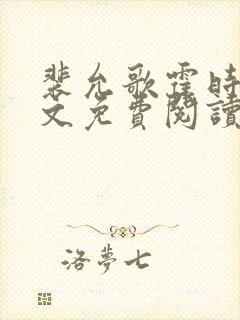 裴允歌霍时
文免費閱讀
洛夢七